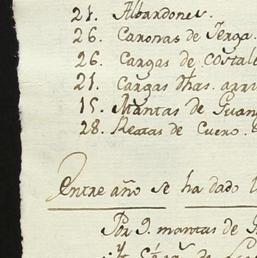 21. Albardones.
26. Caronas de Jerga.
26. Cargas de costale
21. Cargas dhas. arri
15. Mantas de Guan
28. Reatas de Cuero.
Entre año se ha dado
Por 9. mantas de